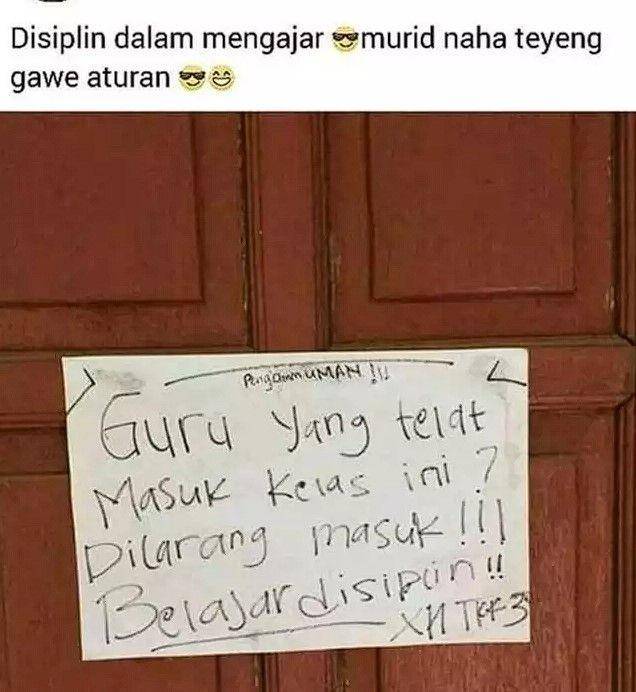 Disiplin dalam mengajar 😎murid naha teyeng
gawe aturan 😎😄
PengammUMAN !!!
Guru yang telat
Masuk kelas ini ?
Dilarang masuk!!!
Belajar disiplin!!